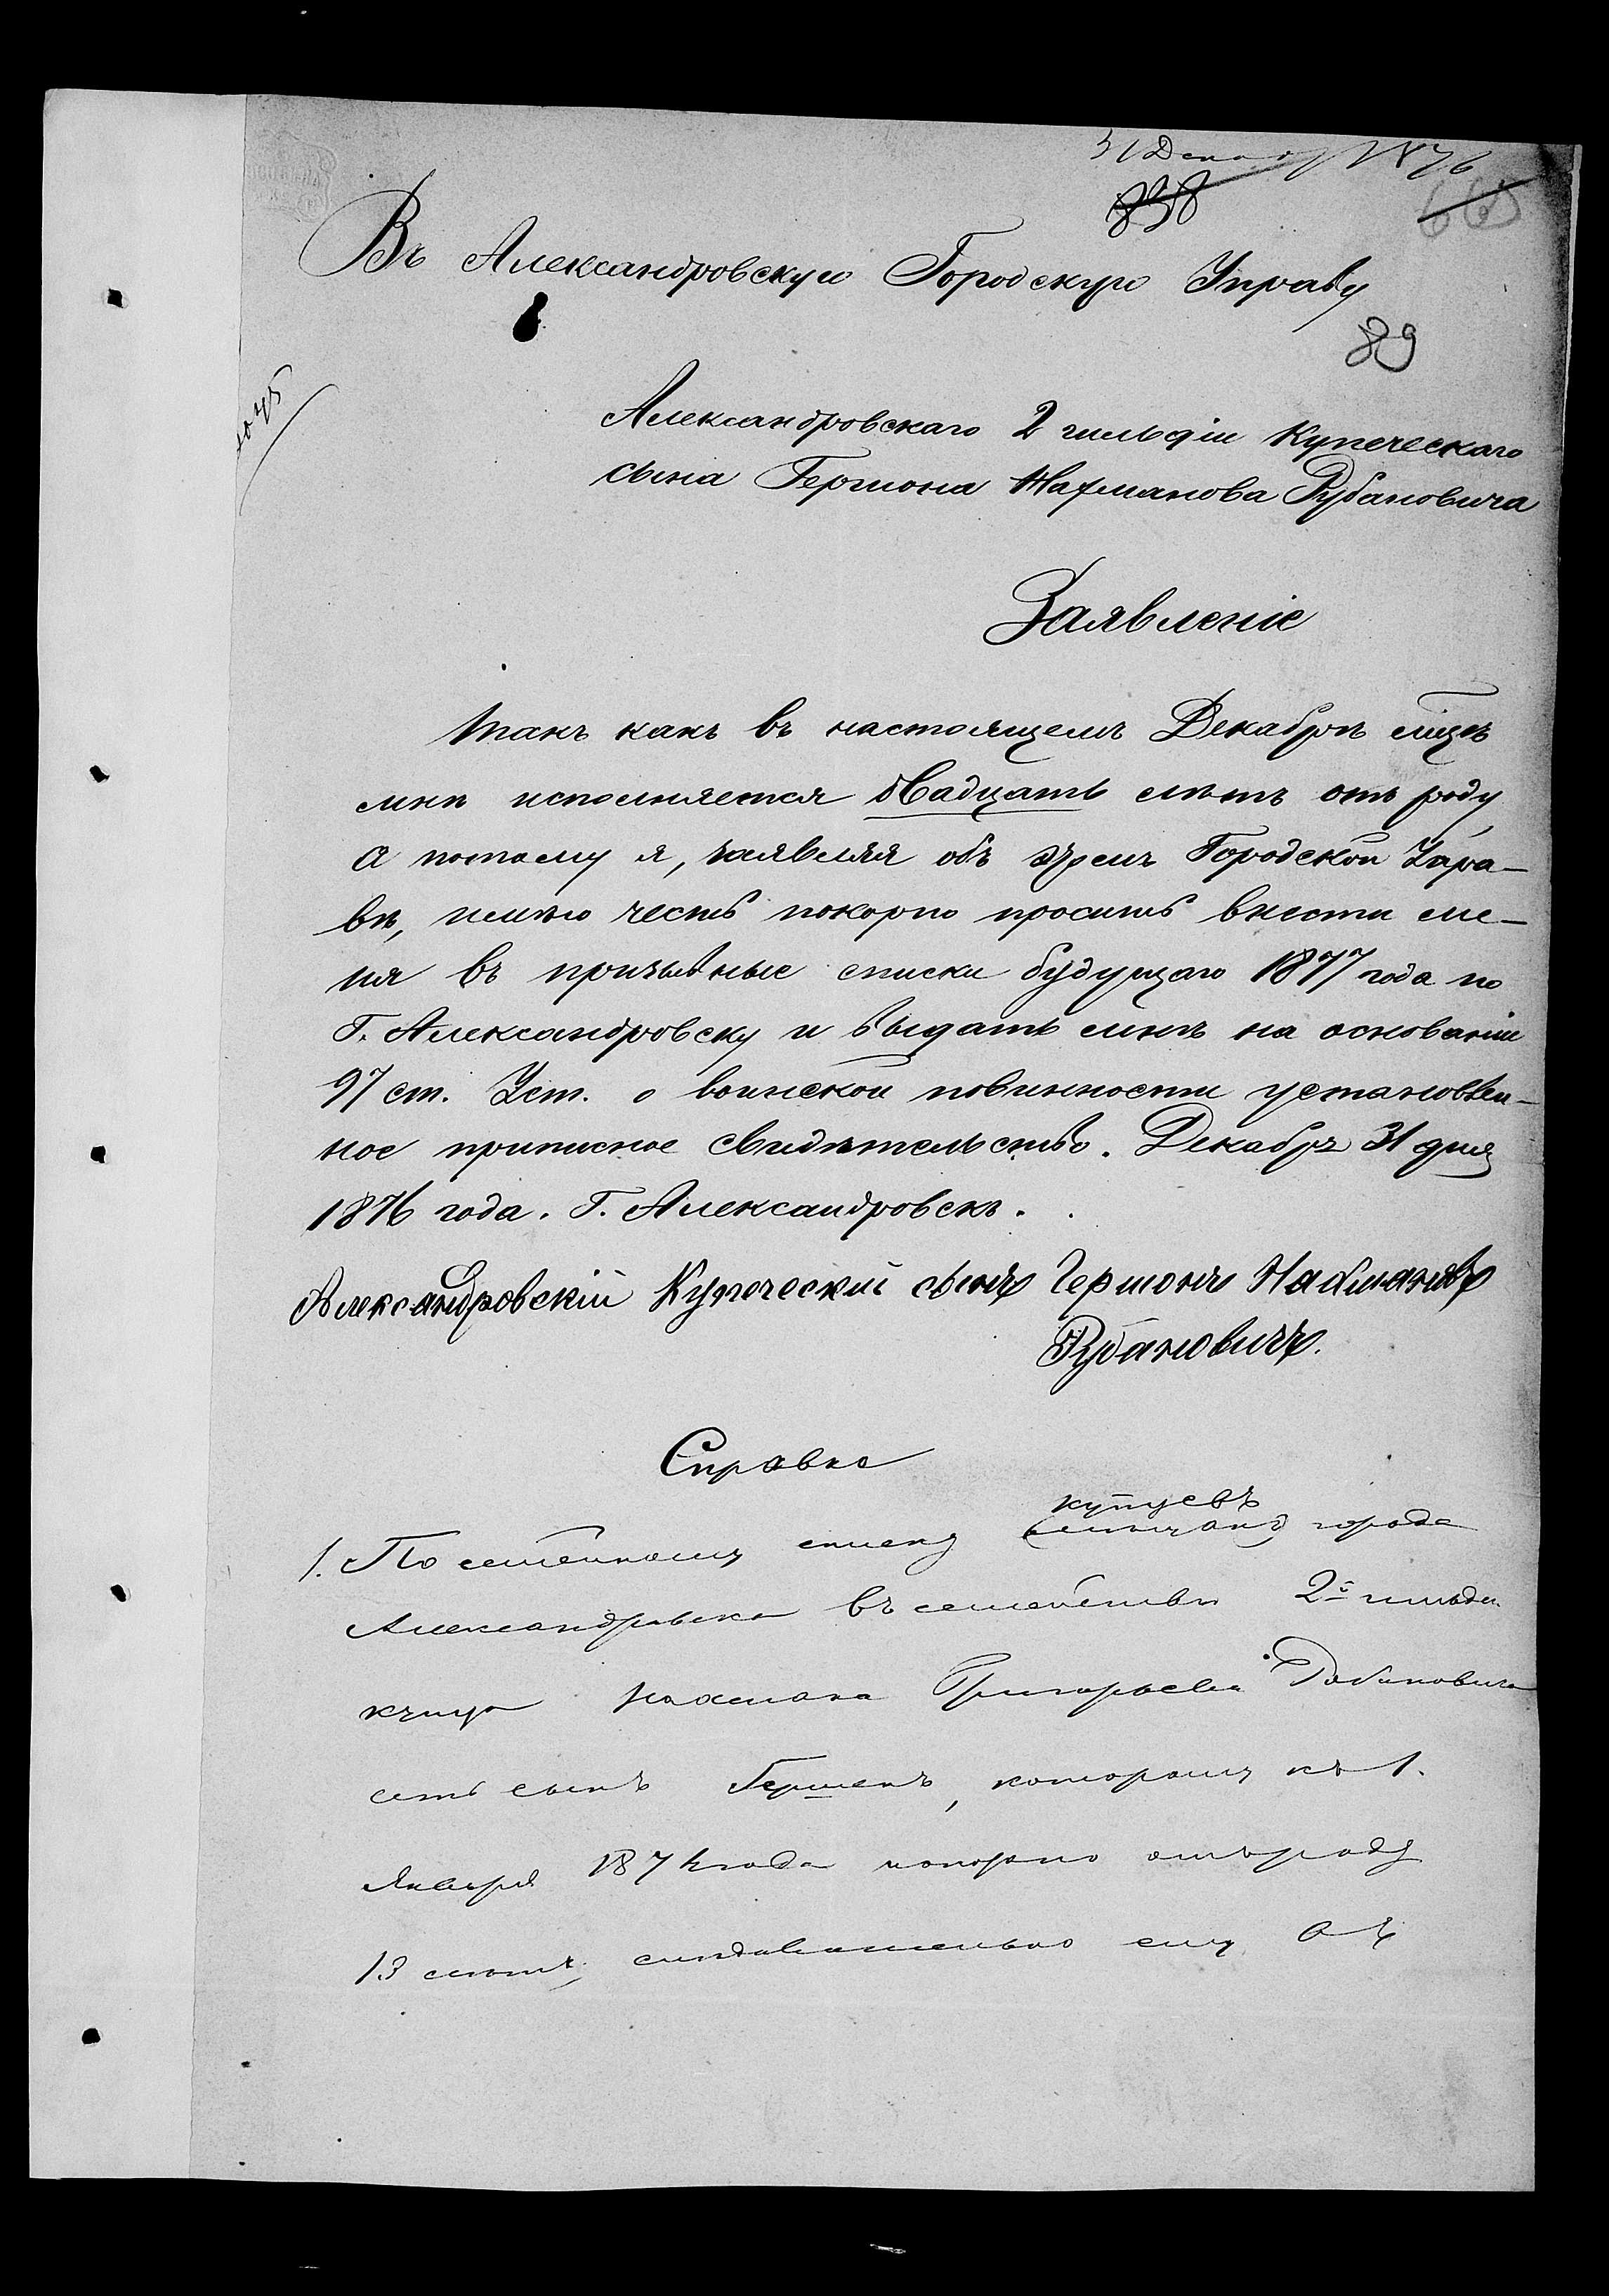 31 Декабр 1876
838
665
Въ Александровскую Городскую Управу
89
Александровскаго 2 гильдіи Купеческаго
сына Гершона Нахманова Рубановича
Заявленіе
Такъ какъ въ настоящемъ Декабрѣ м͠цѣ
мнѣ исполняется двадцать лѣтъ отъ роду
а потому я, заявляя объ этомъ Городской Упра-
вѣ, имѣю честь покорно просить внести ме-
ня въ призывные списки будущаго 1877 года по
Г. Александровску и выдать мнѣ на основаніи
97 ст. Уст. о воинской повинности установлен-
ное приписное свидѣтельство. Декабря 31 дня
1876 года. Г. Александровскъ.
Александровскій Купеческій сынъ Гершонъ Нахмановъ
Рубановичъ.
Справка
купцевъ
1. По семейному списку (мѣщанъ) города
Александровска въ семействѣ 2й гильдіи
купца Нахмана Григорьева Рабиновича
есть сынъ Гершенъ, которому къ 1.
Января 187 года показано отъ роду
13 лѣтъ, слѣдовательно ему